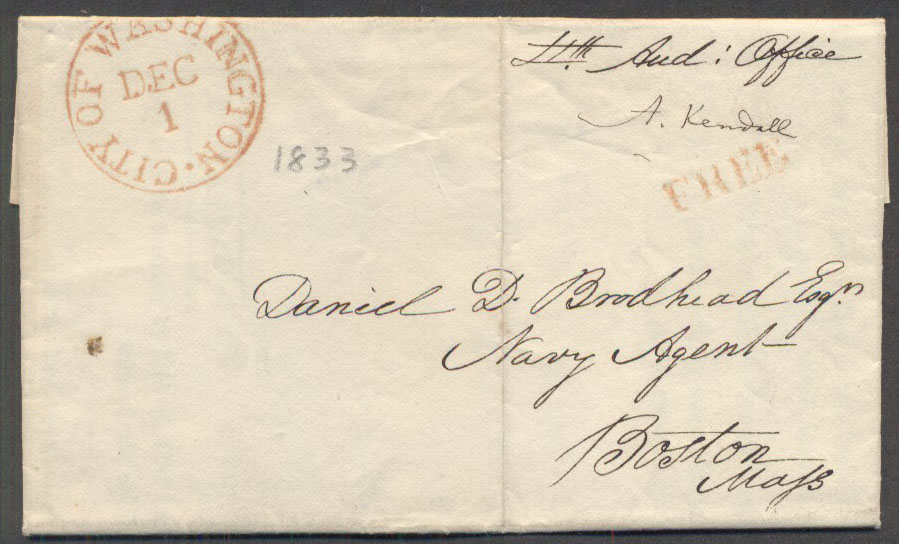 CITY OF WASHINGTON.
DEC
1
1833
4th. Aud: Office
A. Kendall
FREE
Daniel D. Brodhead Esqr.
Navy Agent
Boston
Mass